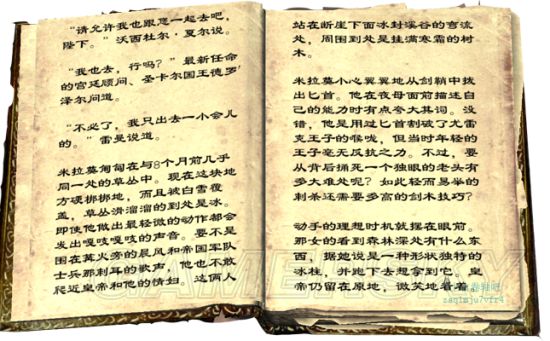 “请允许我也跟您一起去吧，
陛下。”沃西杜尔·夏尔说。
“我也去，行吗？”最新任命
的宫廷顾问、圣卡尔国王德罗
泽尔问道。
“不必了，我只出去一小会儿
的。”雷曼说道。
米拉莫匍匐在与8个月前几乎
同一处的草丛中。现在这块地
方硬梆梆地，而且被白雪覆
盖，草丛滑溜溜的到处是冰。
即使他做出最轻微的动作都会
发出嘎吱嘎吱的声音。要不是
围在篝火旁的晨风和帝国军队
士兵那刺耳的歌声，他也不敢
爬近皇帝和他的情妇。这俩人
站在断崖下面冰封溪谷的弯流
处，周围到处是挂满寒霜的树
木。
米拉莫小心翼翼地从剑鞘中拔
出匕首。他在夜母面前描述自
己的能力时有点夸大其词。没
错，他是用过匕首割破了尤雷
克王子的喉咙，但当时年轻的
王子毫无反抗之力。不过，要
从背后捅死一个独眼的老头有
多大难处呢？如此轻而易举的
刺杀还需要多高的剑术技巧？
动手的理想时机就摆在眼前。
那女的看到森林深处有什么东
西，据她说是一种形状独特的
冰柱，并跑下去想拿到它。皇
帝仍留在原地，微笑地看着
GAMERSKY
卷轴吧
zaq1mju7vfr4